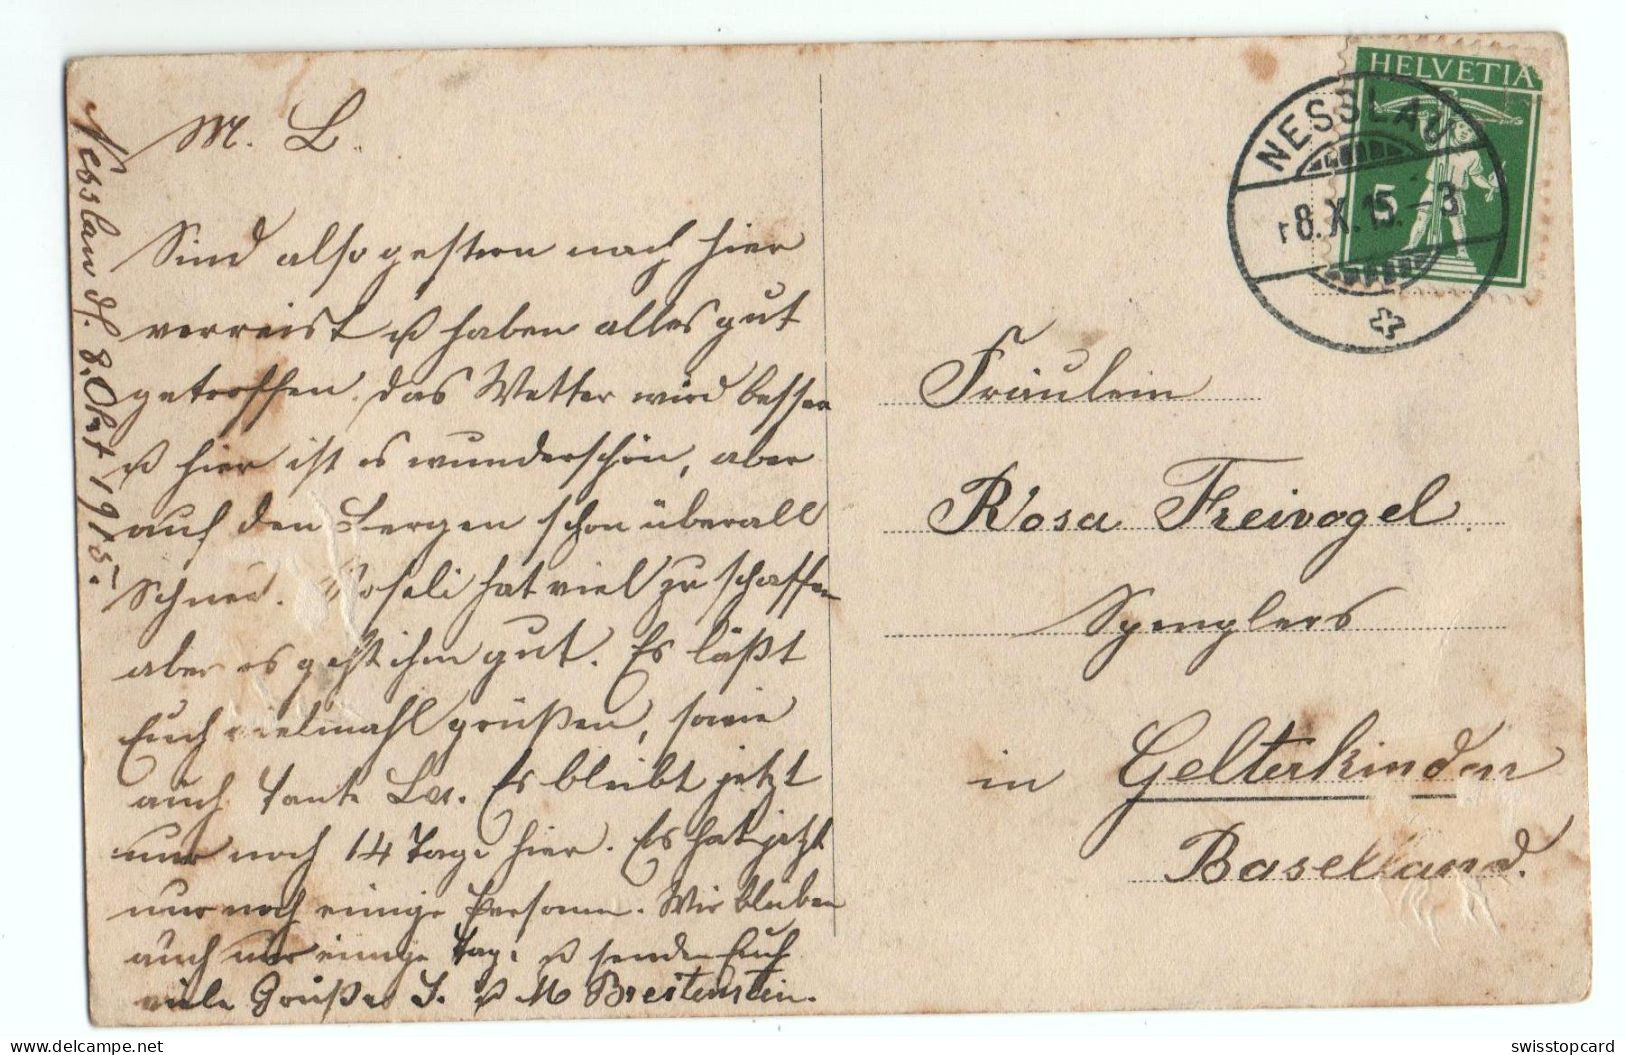 Nesslau d. 8. Okt 1915.
M. L.
Sind also gestern nach hier
verreist u haben alles gut
getroffen. Das Wetter wird besser
u hier ist es wunderschön, aber
auf den Bergen schon überall
Schnee. Roseli hat viel zu schaffen
aber es geht ihm gut. Es läßt
Euch vielmahl grüßen, sowie
auch Tante Lea. Es bleibt jetzt
nur noch 14 Tage hier. Es hat jetzt
nur noch einige Personen. Wir bleiben
auch nur einige Tage u senden Euch
viele Grüße J. u M Breitenstein.
HELVETIA
5
NESSLAU
8.X.15.-3
Fräulein
Rosa Freivogel
Spenglers
in Gelterkinden
Baselland.
www.delcampe.net
swisstopcard